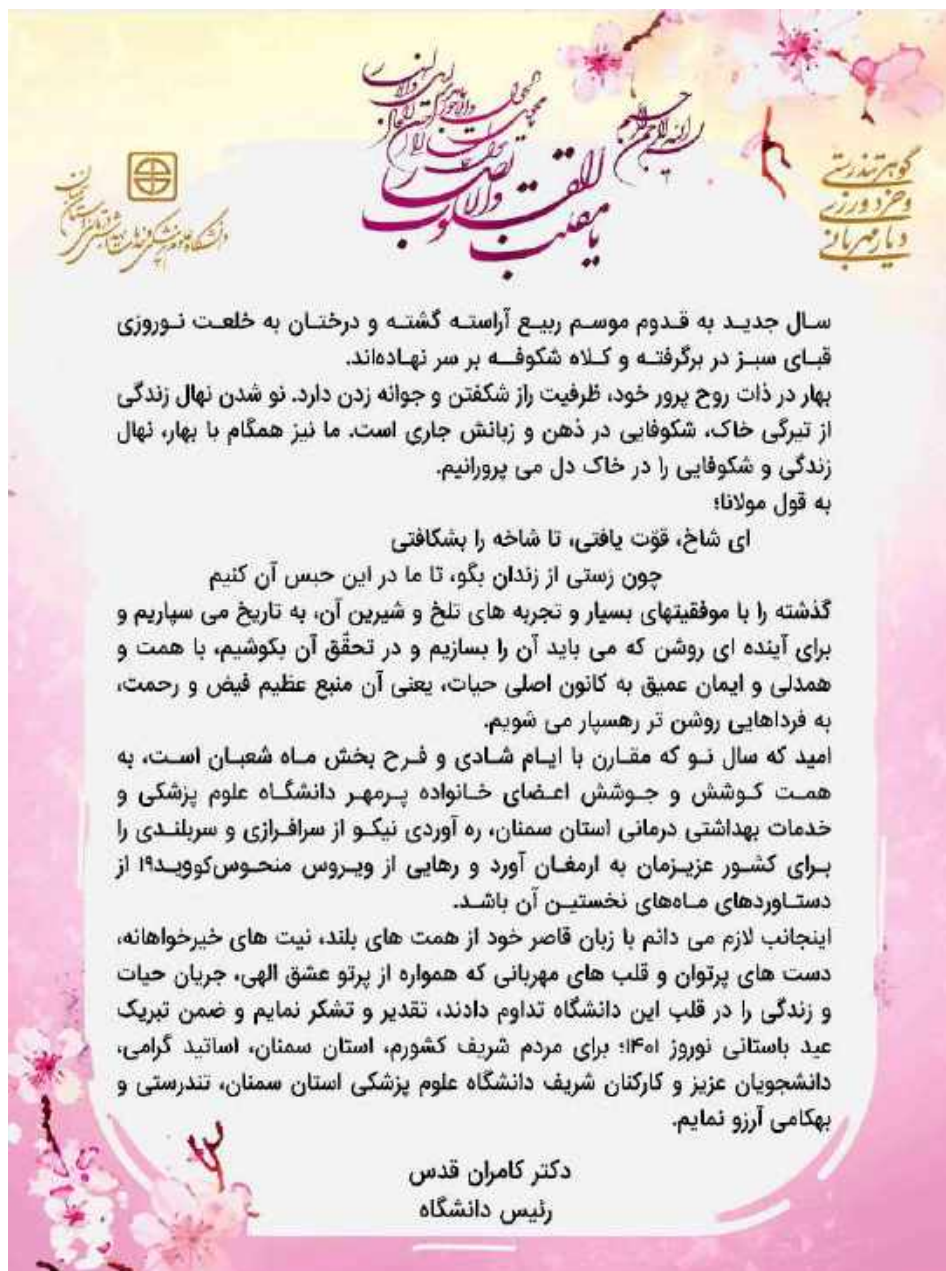 بسم الله الرحمن الرحیم
یا مقلب القلوب
والابصار
گوهر تندرستی
و خرد ورزی
دیار مهربانی
سال جدید به قدوم موسم ربیع آراسته گشته و درختان به خلعت نوروزی
قبای سبز در برگرفته و کلاه شکوفه بر سر نهاده‌اند.
بهار در ذات روح پرور خود، ظرفیت راز شکفتن و جوانه زدن دارد. نو شدن نهال زندگی
از تیرگی خاک، شکوفایی در ذهن و زبانش جاری است. ما نیز همگام با بهار، نهال
زندگی و شکوفایی را در خاک دل می پرورانیم.
به قول مولانا؛
ای شاخ، قوّت یافتی، تا شاخه را بشکافتی
چون رَستی از زندان بگو، تا ما در این حبس آن کنیم
گذشته را با موفقیتهای بسیار و تجربه های تلخ و شیرین آن، به تاریخ می سپاریم و
برای آینده ای روشن که می باید آن را بسازیم و در تحقّق آن بکوشیم، با همت و
همدلی و ایمان عمیق به کانون اصلی حیات، یعنی آن منبع عظیم فیض و رحمت،
به فرداهایی روشن تر رهسپار می شویم.
امید که سال نو که مقارن با ایام شادی و فرح بخش ماه شعبان است، به
همت کوشش و جوشش اعضای خانواده پرمهر دانشگاه علوم پزشکی و
خدمات بهداشتی درمانی استان سمنان، ره آوردی نیکو از سرافرازی و سربلندی را
برای کشور عزیزمان به ارمغان آورد و رهایی از ویروس منحوس‌کووید۱۹ از
دستاوردهای ماه‌های نخستین آن باشد.
اینجانب لازم می دانم با زبان قاصر خود از همت های بلند، نیت های خیرخواهانه،
دست های پرتوان و قلب های مهربانی که همواره از پرتو عشق الهی، جریان حیات
و زندگی را در قلب این دانشگاه تداوم دادند، تقدیر و تشکر نمایم و ضمن تبریک
عید باستانی نوروز ۱۴۰۱؛ برای مردم شریف کشورم، استان سمنان، اساتید گرامی،
دانشجویان عزیز و کارکنان شریف دانشگاه علوم پزشکی استان سمنان، تندرستی و
بهکامی آرزو نمایم.
دکتر کامران قدس
رئیس دانشگاه